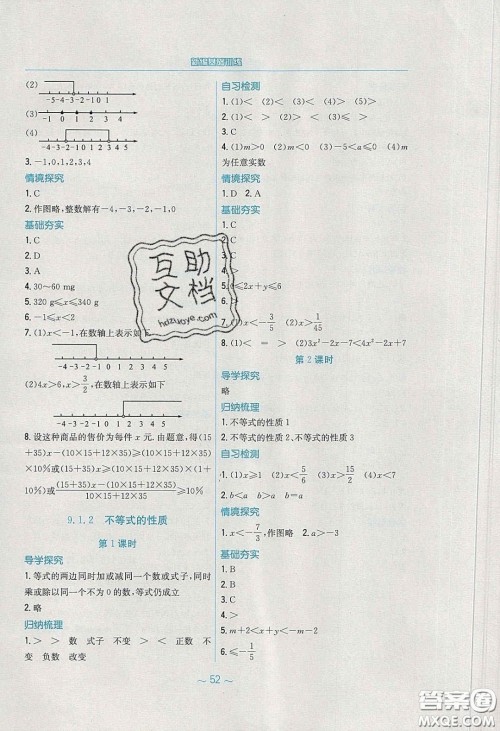 (2)
-5-4-3-2-1 0 1
-4-3-2-1 0 1 2 3 4
(4)
-4-3-2-1 0 1 2 3 4 5
3. -1,0,1,2,3,4
情境探究
1. C
2. 作图略,整数解有-4,-3,-2,-1,0
基础夯实
1. C
2. D
3. A
4. 30~60 mg
5. 320 g≤x≤340 g
7. (1)x<-1,在数轴上表示如下
-4-3-2-1 0 1 2 3 4
(2)4x>6,x>3/2,在数轴上表示如下
-4-3-2-1 0 1 2 3 4
8. 设这种商品的售价为每件 x 元.由题意,得(15
+35)x-(10×15+12×35)≥(10×15+12×35)
×10%或(15+35)x-(10×15+12×35)≥10%
或((15+35)x-(10×15+12×35))/(10×15+12×35)≥10%
9.1.2 不等式的性质
第1课时
导学探究
1. 等式的两边同时加或减同一个数或式子,同时
乘或除以同一个不为0的数,等式仍成立
2. 略
归纳梳理
1. > > 数 式子 不变 > < 正数 不
变 负数 改变
自习检测
1. (1)< (2)< (3)< (4)> (5)>
2. (1)< > (2)> < (3)> <
3. C
4. (1)m>0 (2)m<0 (3)-5<a≤0 (4)m
为任意实数
情境探究
1. D 2. A
基础夯实
1. C
6. 0≤2x+y≤6
7. (1)x<-3/5 (2)x>1/45
8. (1)< = > (2)3x²-2x-7<4x²-2x+7
第2课时
导学探究
略
归纳梳理
1. 不等式的性质1
2. 不等式的性质2、不等式的性质3
自习检测
2. b<a b>a
情境探究
1. x<-7/3,作图略 2. a>-3
基础夯实
1. C
2. D
3. A
4. >
5. m+2<x+y<-m+4
~ 52 ~
互助
文档
hdzuoye.com
答案圈
MXQE.COM